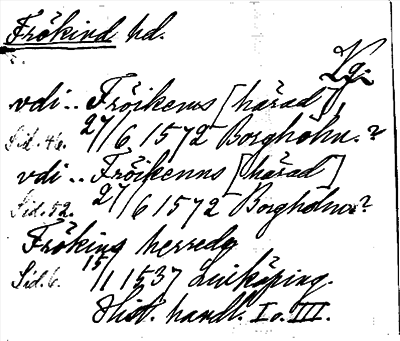 Frökind hd.
Vg.
vdi.. Fröikenns [härad]
Sid. 46. 27/6 1572 Borgholm.?
vdi.. Fröikenns [härad]
Sid. 52. 27/6 1572 Borgholm?
Frökins herrede
Sid. 6. 15/1 1537 Linköping.
Hist. handl. I o. III.